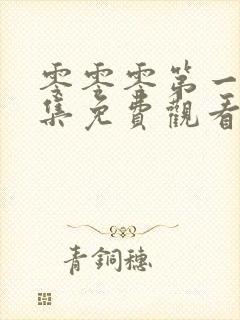 零零零第一
集免費觀看
青銅穗